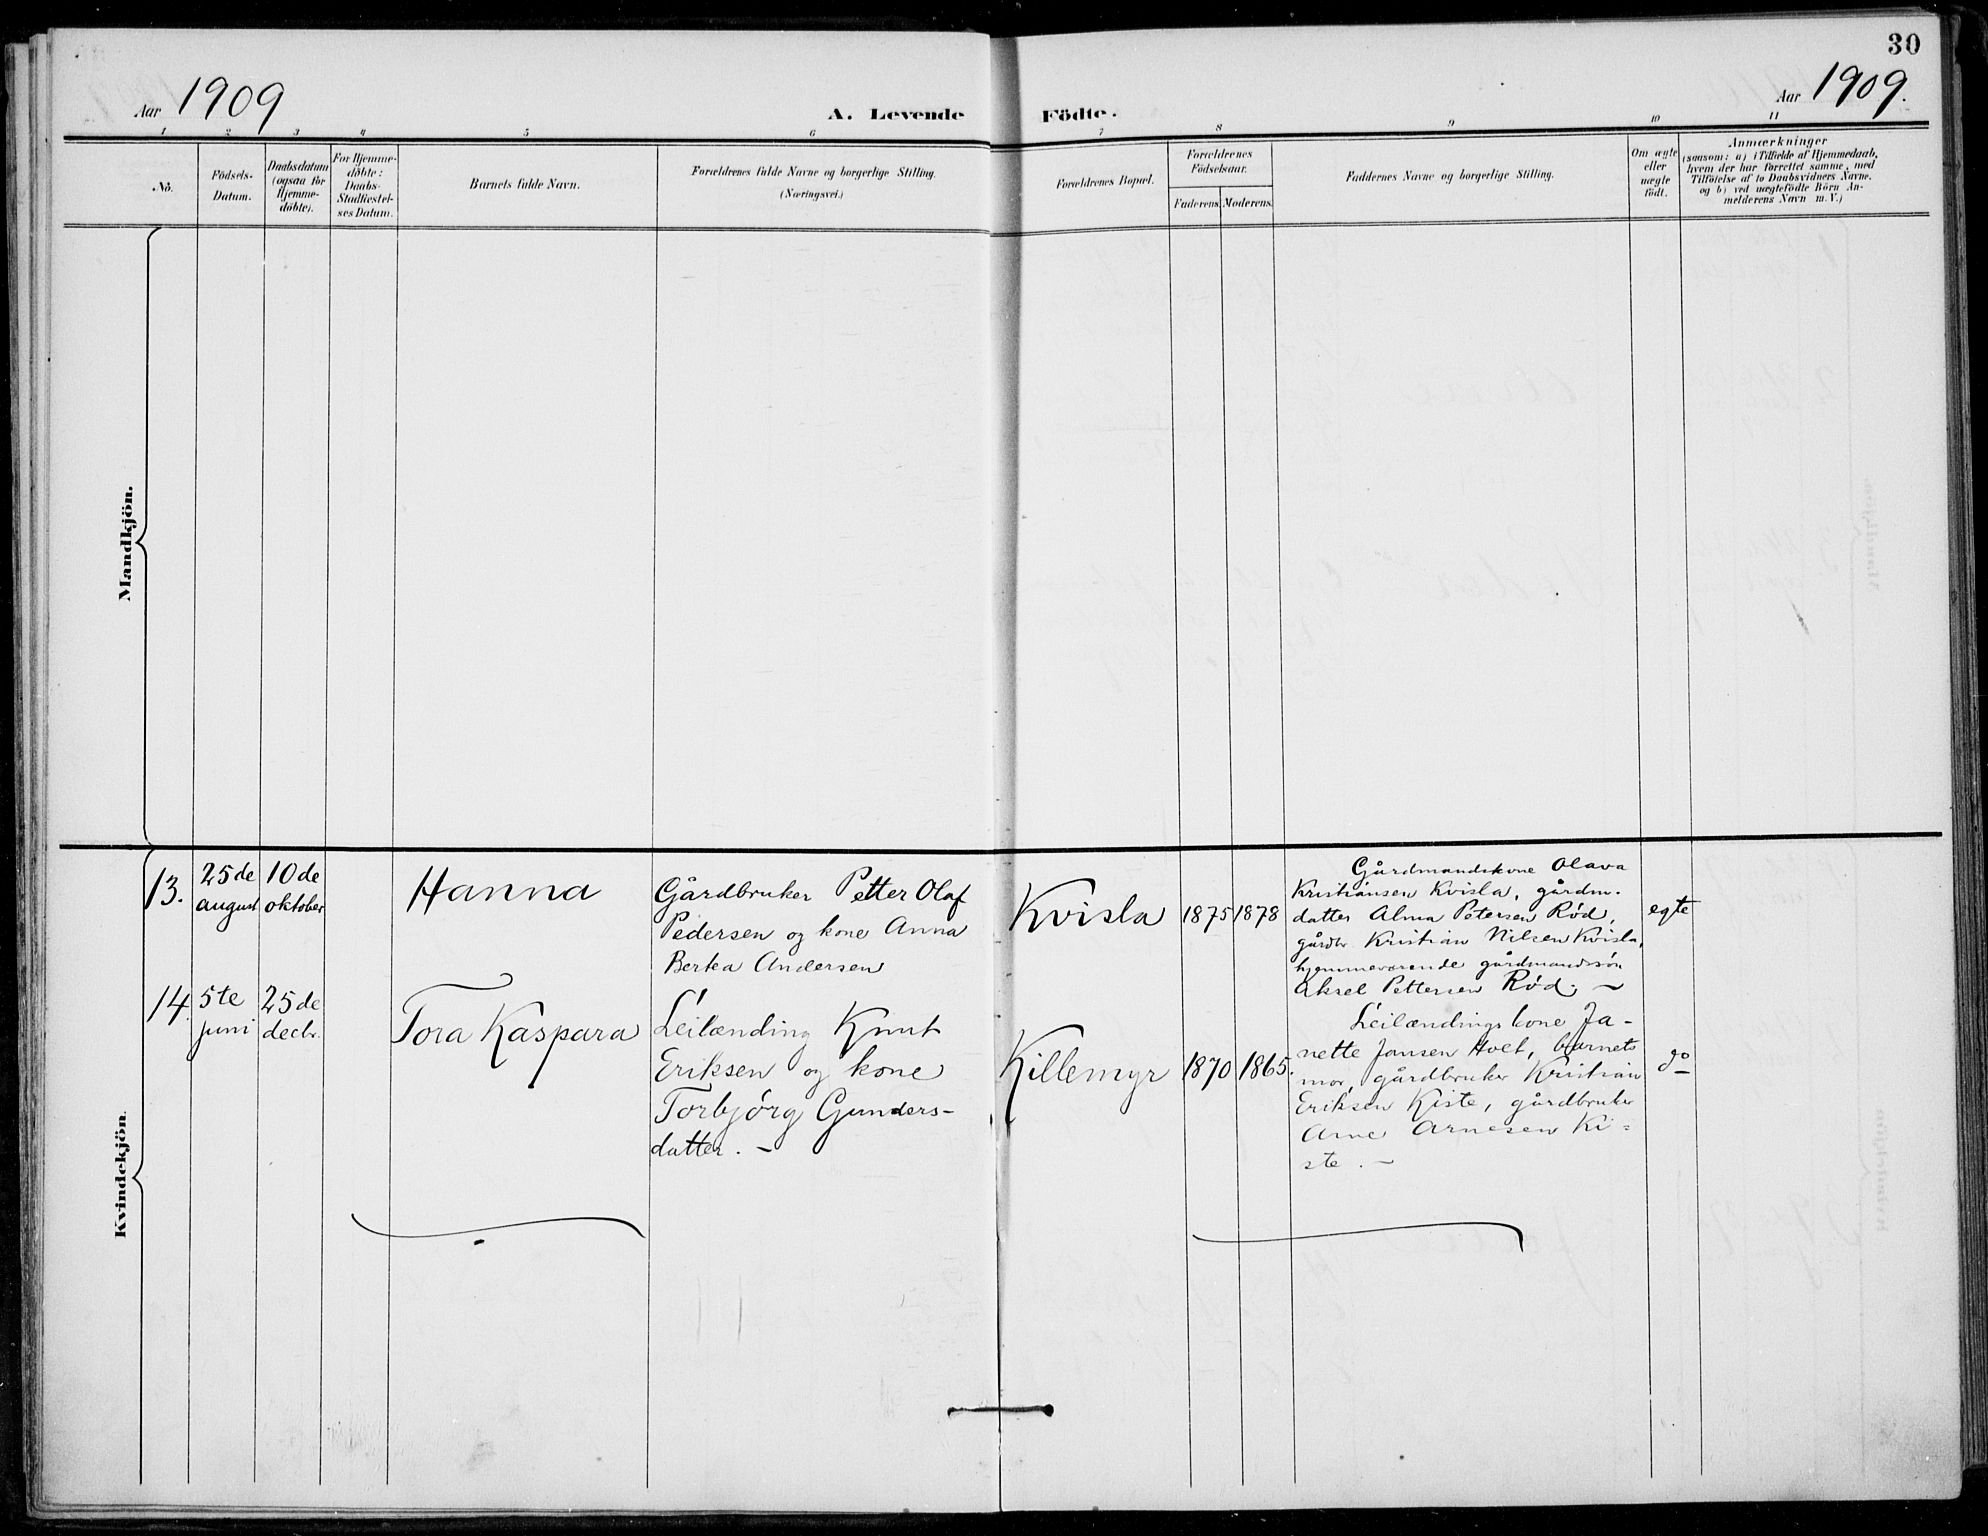 30
Aar 1909
A. Levende Födte.
Aar 1909.
1 2 3 4 5 6 7 8 9 10 11
No.
Födsels-
Datum.
Daabsdatum
(ogsaa for
Hjemme-
döbte).
For Hjemme-
döbte:
Daabs-
Stadfæstel-
ses Datum.
Barnets fulde Navn.
Forældrenes fulde Navne og borgerlige Stilling.
(Næringsvei.)
Forældrenes Bopæl.
Forældrenes
Födselsaar.
Faderens. Moderens.
Faddernes Navne og borgerlige Stilling.
Om ægte
eller
uægte
födt.
Anmærkninger
(saasom: a) i Tilfælde af Hjemmedaab,
hvem der har forrettet samme, med
Tilföielse af to Daabsvidners Navne,
og b) ved uægtefödte Börn An-
melderens Navn m. V.)
Mandkjön.
Kvindekjön.
13.
25de
august
10de
oktober
Hanna
Gårdbruker Petter Olaf
Pedersen og kone Anna
Berta Andersen
Kvisla
1875
1878
Gårdmandskone Olava
Kristiansen Kvisla, gårdm.
datter Alma Petersen Rød,
gårdbr Kristian Nilsen Kvisla,
hjemmeværende gårdmandssøn
Aksel Pettersen Rød. —
egte
14
5te
juni
25de
decbr.
Tora Kaspara
Leilænding Knut
Eriksen og kone
Torbjørg Gunders-
datter. —
Killemyr
1870
1865.
Leilændings kone Ja-
nette Jansen Holt, barnets
mor, gårdbruker Kristian
Eriksen Kiste, gårdbruker
Arne Arnesen Ki=
ste. —
do